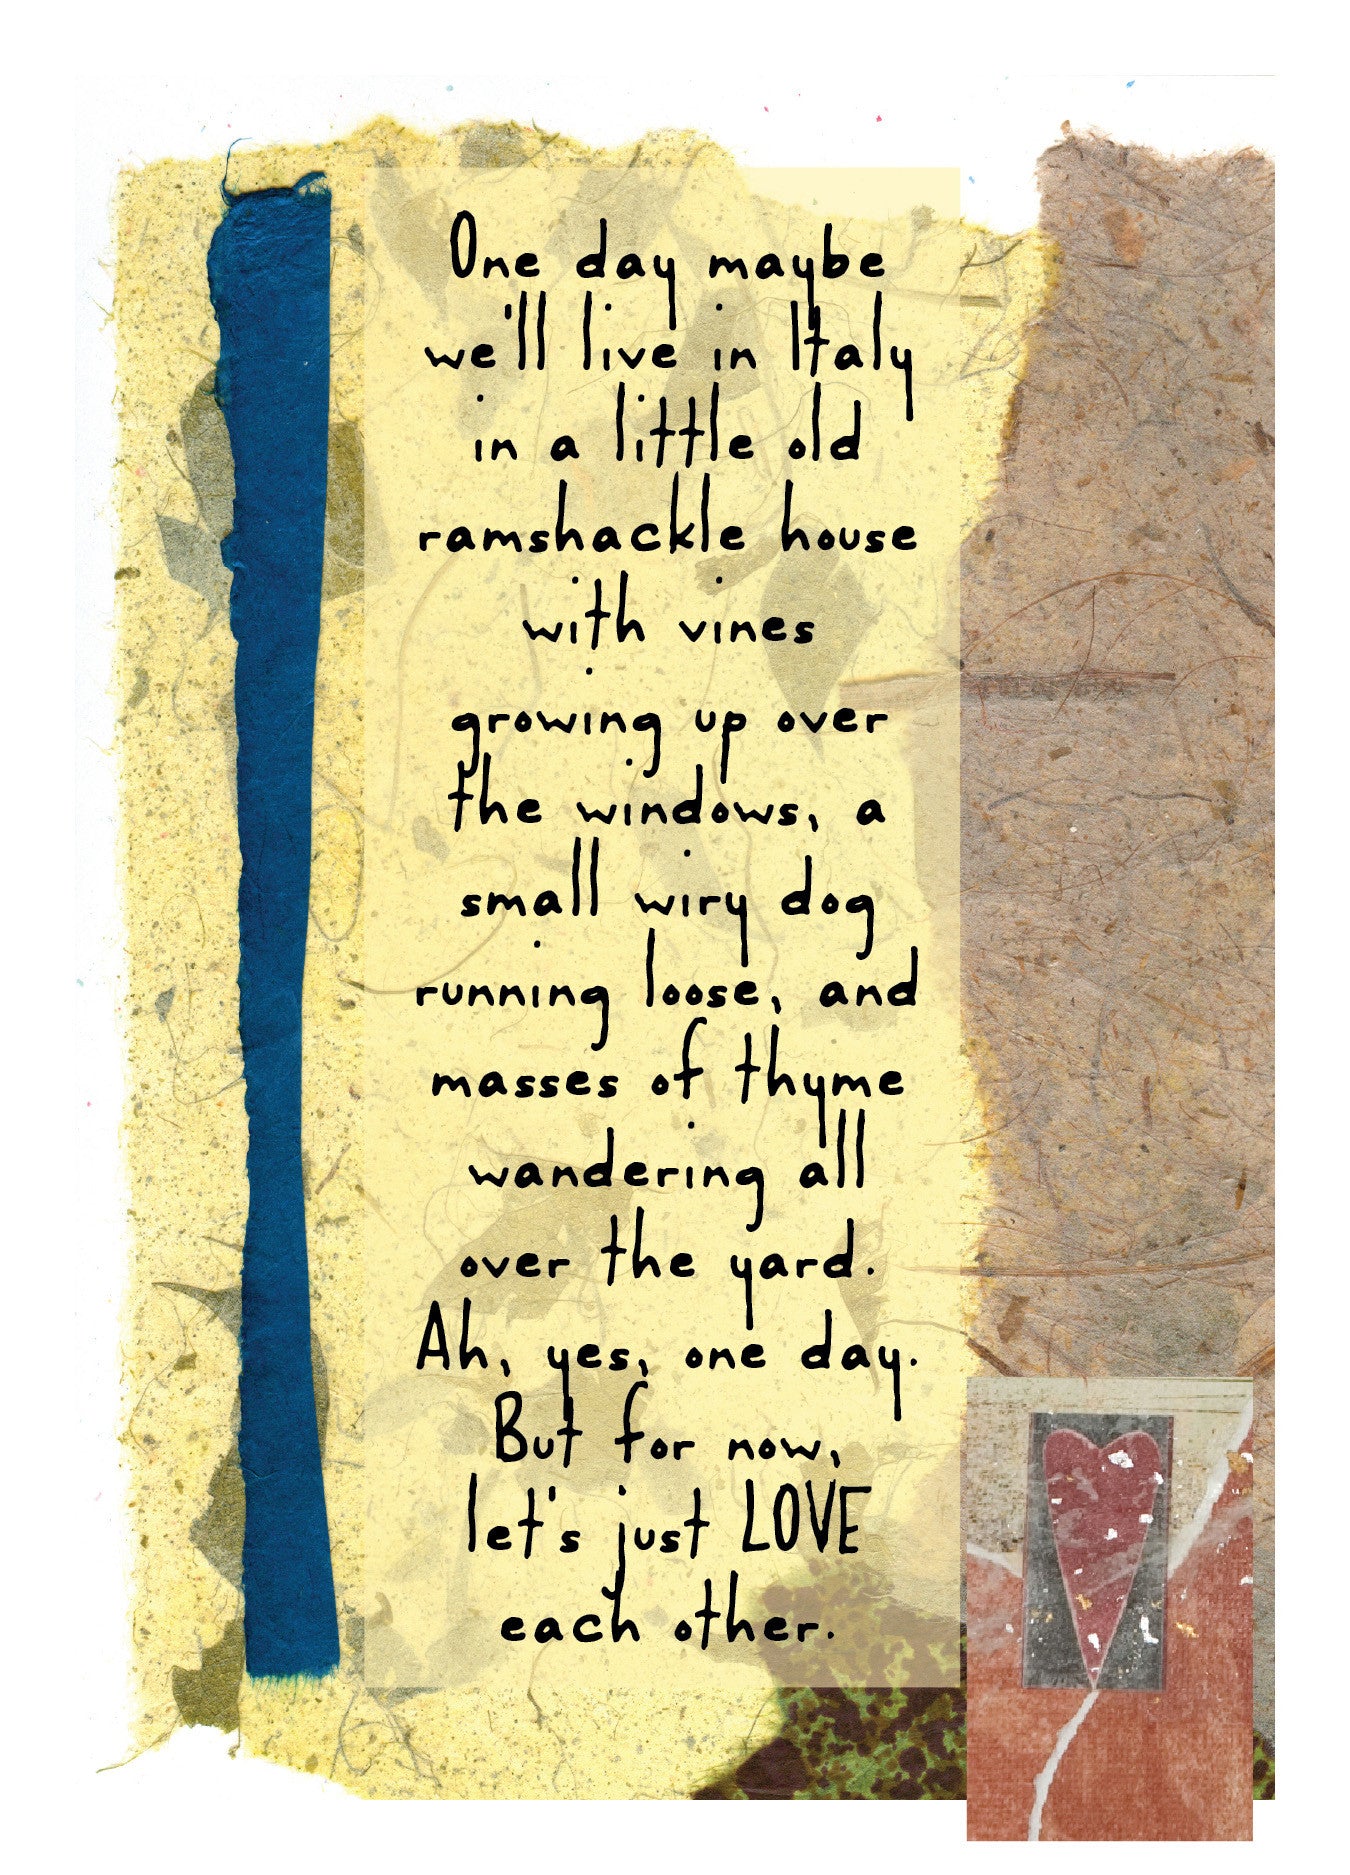 One day maybe
we'll live in Italy
in a little old
ramshackle house
with vines
growing up over
the windows, a
small wiry dog
running loose, and
masses of thyme
wandering all
over the yard.
Ah, yes, one day.
But for now,
let's just LOVE
each other.